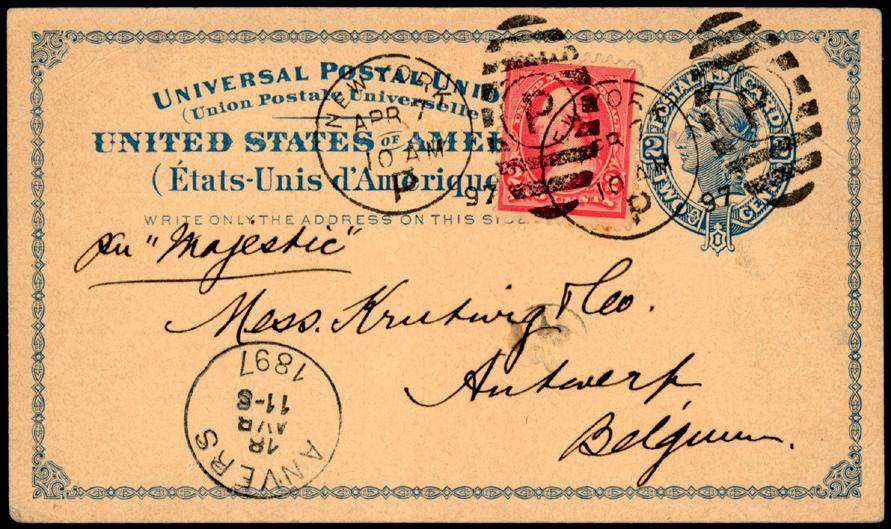 UNIVERSAL POSTAL UNIO
(Union Postale Universelle
UNITED STATES OF AMER
(États-Unis d'Amérique
WRITE ONLY THE ADDRESS ON THIS SIDE
NEW YORK
APR 7
10 AM
P
97
P
2
10 AM
P
97
P
POSTAL CARD
2 2
TWO CENTS
per "Majestic"
Mess. Krutwig & Co.
Antwerp
Belgium.
ANVERS
18
AVR
11-S
1897